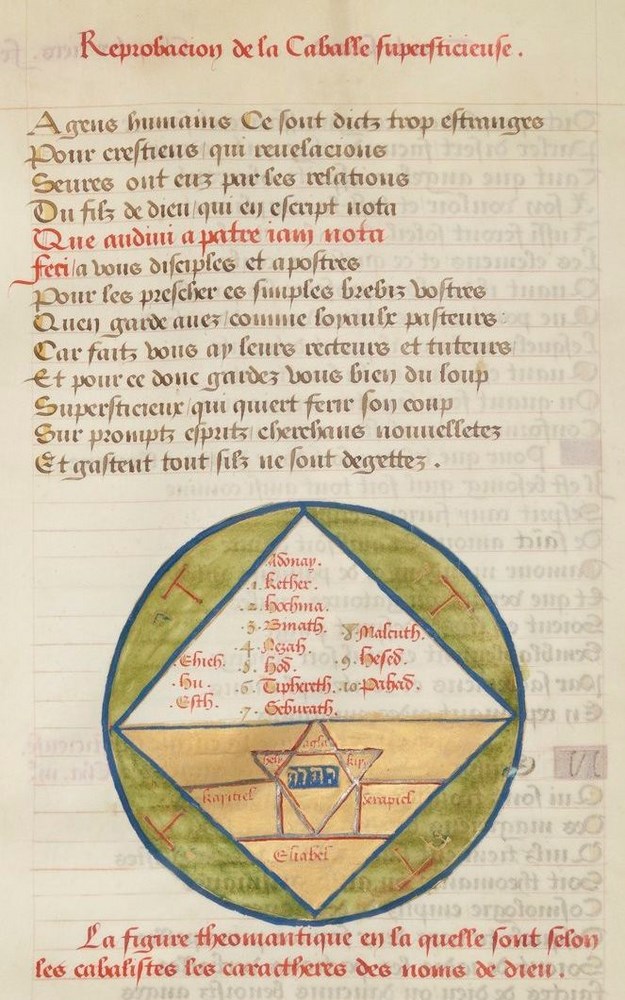 Reprobacion de la Caballe supersticieuse.
A gens humains Ce sont dictz trop estranges
Pour crestiens qui revelacions
Seures ont euz par les relations
Du filz de dieu qui en escript nota
Que audivi a patre iam nota
feci a vous disciples et apostres
Pour les prescher es simples brebiz vostres
Quen garde avez comme loyaulx pasteurs
Car faitz vous ay leurs recteurs et tuteurs
Et pour ce donc gardez vous bien du loup
Supersticieux qui quiert ferir son coup
Sur promptz espritz cherchans nouvelletez
Et gastent tout silz ne sont degettez.
Adonay.
.1. Kether.
.2. Hochma.
.3. Binath.
.4. Nezah.
.5. Hod.
6. Tiphereth.
7. Geburath.
8. Malcuth.
.9. Hesed.
.10. Pahad.
.Ehieh.
.Hu.
.Esth.
agla
Kapitiel
Serapiel
Eliabel
La figure theomantique en la quelle sont selon
les cabalistes les caractheres des noms de dieu.